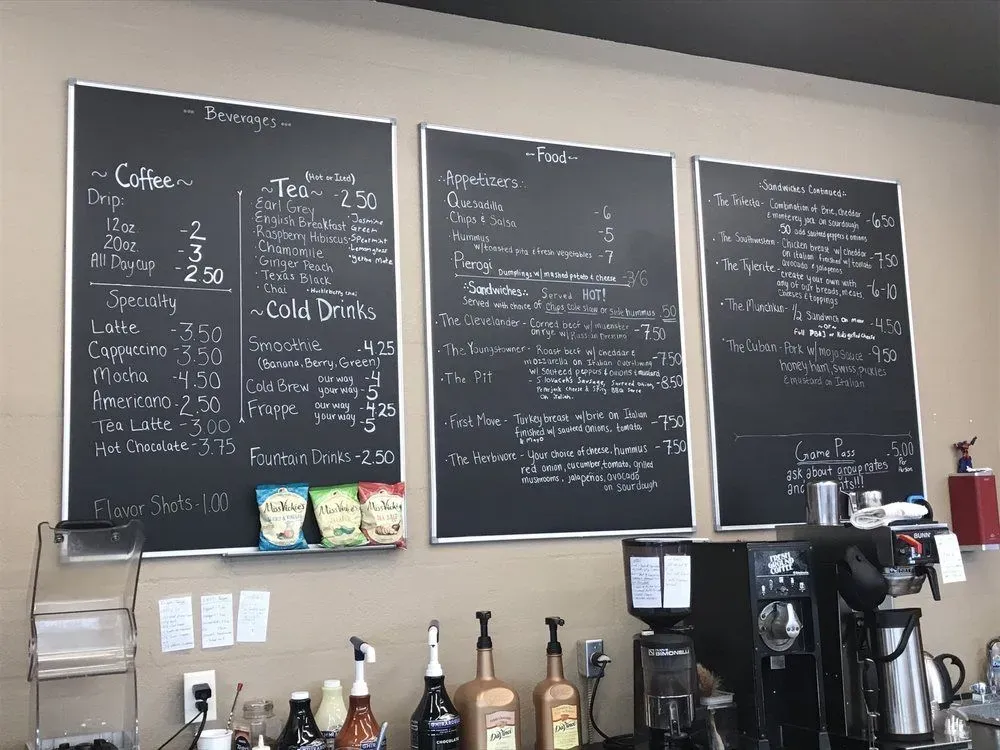 Beverages
~ Coffee ~
Drip:
12oz -2
20oz. -3
All Day cup -2.50
Specialty
Latte -3.50
Cappuccino -3.50
Mocha -4.50
Americano -2.50
Tea Latte -3.00
Hot Chocolate -3.75
Flavor Shots -1.00
(Hot or Iced)
~ Tea ~ -2.50
Earl Grey
English Breakfast
Raspberry Hibiscus
Chamomile
Ginger Peach
Texas Black
Chai
· Jasmine
Green
· Spearmint
· Lemongrass
· Yerba Mate
· Huckleberry chai
~ Cold Drinks
Smoothie -4.25
(Banana, Berry, Green)
Cold Brew our way -4
your way -5
Frappe our way -4.25
your way -5
Fountain Drinks -2.50
Miss Vickie's
Miss Vickie's
Miss Vickie's
~ Food ~
Appetizers:
Quesadilla -6
Chips & Salsa -5
Hummus
w/toasted pita & fresh vegetables -7
Pierogi Dumplings w/ mashed potato & cheese -3/6
Sandwiches: Served HOT!
Served with choice of Chips, Cole slaw or Side hummus .50
· The Clevelander - Corned beef w/ muenster
on rye w/ Russian Dressing -7.50
· The Youngstowner - Roast beef w/ cheddar &
mozzarella on Italian -7.50
w/ sauteed peppers & onions & mustard
· The Pit - Slovacek's Sausage, Sauteed onion, -8.50
Pepperjack cheese & Spicy BBQ sauce
on Italian.
· First Move - Turkey breast w/ brie on Italian -7.50
finished w/ sauteed onions, tomato,
& mayo
· The Herbivore - Your choice of cheese, hummus -7.50
red onion, cucumber, tomato, grilled
mushrooms, jalapeños, avocado
on sourdough
Sandwiches Continued:
· The Trifecta - Combination of Brie, cheddar
& monterey jack on sourdough -6.50
.50 add sauteed peppers & onions
· The Southwestern - Chicken breast w/ cheddar
on italian finished w/ tomato, -7.50
avocado & jalapenos
· The Tylerite - create your own with
any of our breads, meats, -6-10
cheeses & toppings
· The Munchkin - 1/2 Sandwich
~ or ~ -4.50
Full PB&J or Kids grilled cheese
· The Cuban - Pork w/ mojo sauce -9.50
honey ham, swiss, pickles
& mustard on Italian
Game Pass -5.00
Per
Person
ask about group rates
and
FRESH
GROUND
COFFEE
BUNN
SIMONELLI
GHIRARDELLI
CHOCOLATE
DaVinci
DaVinci